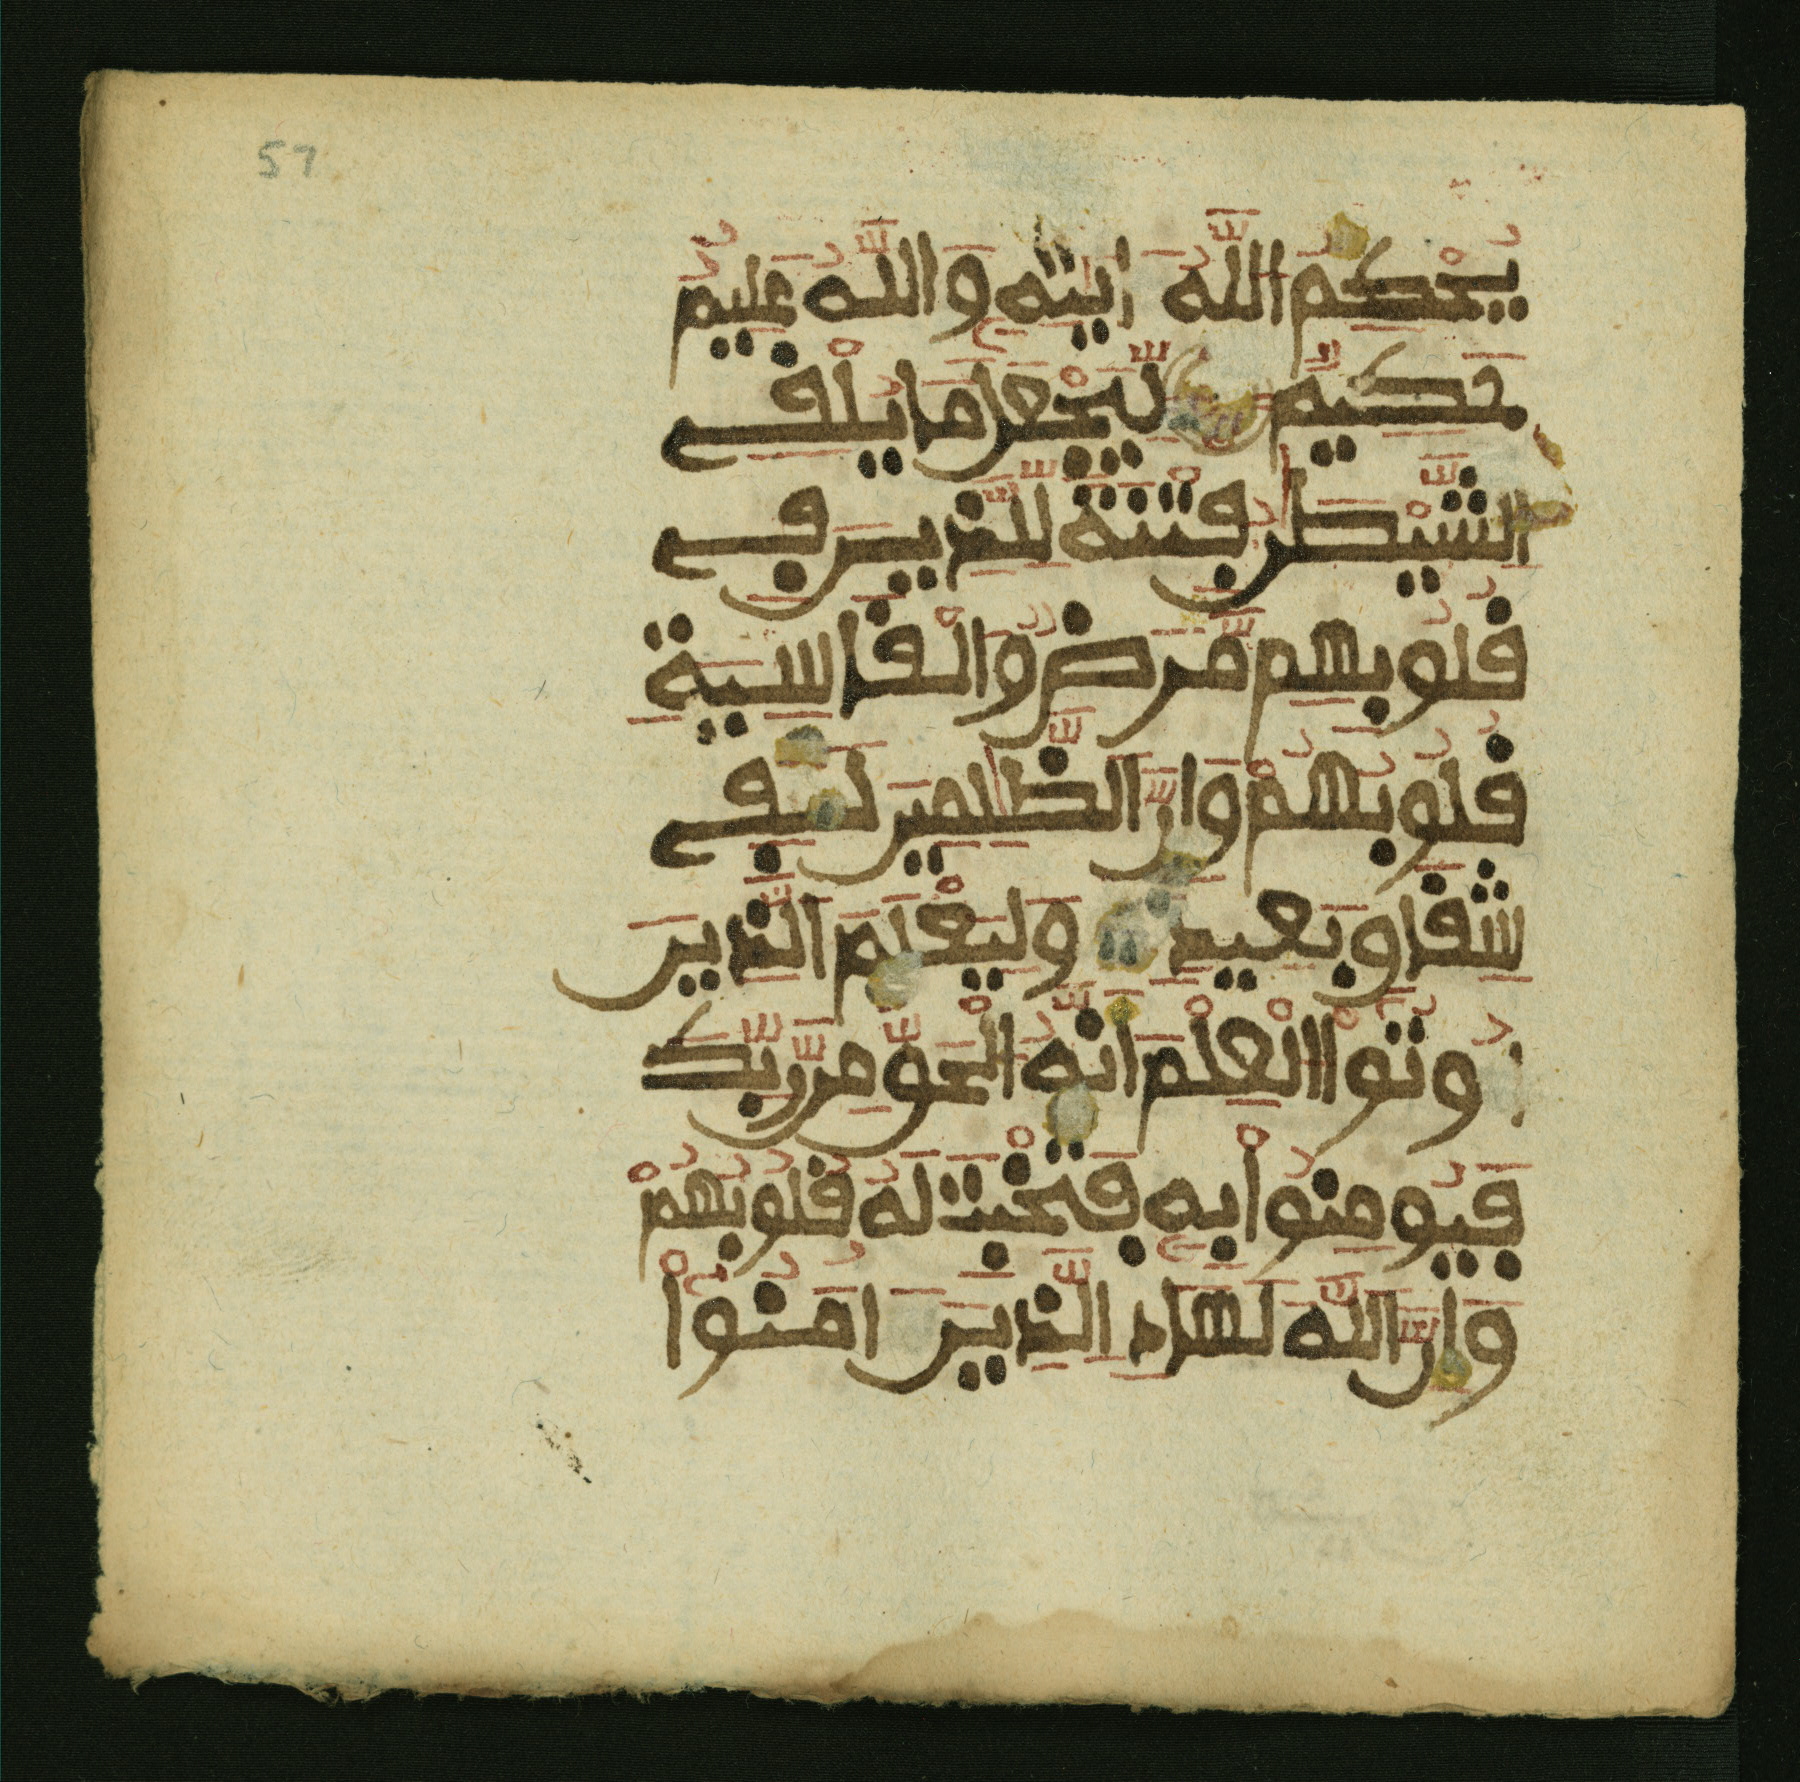 57
يُحْكِمُ اللَّهُ ءَايَٰتِهِۦ وَاللَّهُ عَلِيمٌ
حَكِيمٌ لِّيَجْعَلَ مَا يُلْقِے
الشَّيْطَٰنُ فِتْنَةً لِّلَّذِينَ فِے
قُلُوبِهِم مَّرَضٌ وَالْقَاسِيَةِ
قُلُوبُهُمْ وَإِنَّ الظَّٰلِمِينَ لَفِے
شِقَاقٍ بَعِيدٍ وَلِيَعْلَمَ الَّذِينَ
أُوتُوا الْعِلْمَ أَنَّهُ الْحَقُّ مِن رَّبِّكَ
فَيُومِنُواْ بِهِۦ فَتُخْبِتَ لَهُۥ قُلُوبُهُمْ
وَإِنَّ اللَّهَ لَهَادِ الَّذِينَ ءَامَنُوٓاْ